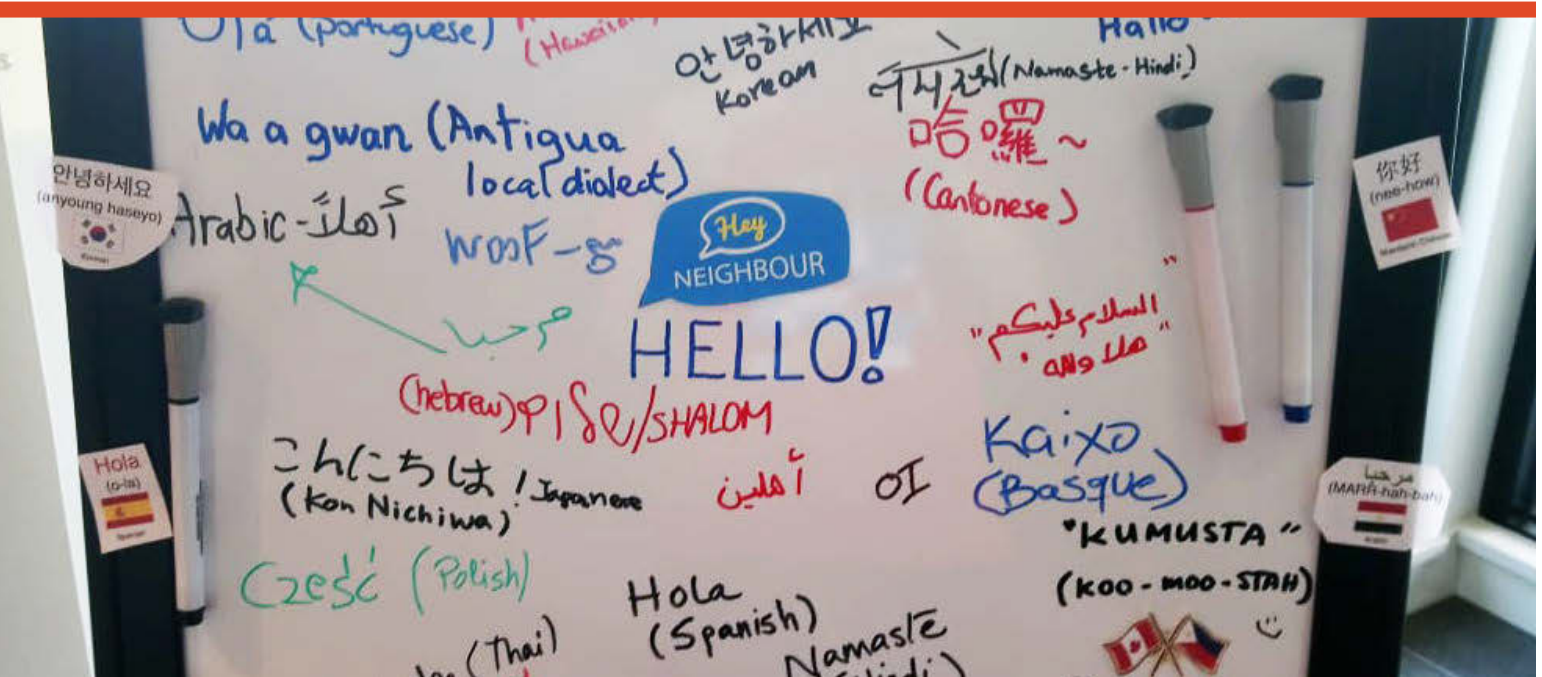 Olá (Portuguese)
(Hawaiian)
안녕하세요
Korean
Hallo
(Namaste-Hindi)
Wa a gwan (Antigua
local dialect)
哈囉~
(Cantonese)
안녕하세요
(anyoung haseyo)
Korean
你好
(nee-how)
Mandarin Chinese
Arabic-أهلاً
WOOF-
Hey
NEIGHBOUR
مرحبا
HELLO!
"السلام عليكم"
"هلا والله.
(hebrew) שלום/SHALOM
Hola
(o-la)
Spanish
こんにちは! Japanese
(Kon Nichiwa)
أهلين
OI
Kaixo
(Basque)
مرحبا
(MARR-hah-bah)
Arabic
"KUMUSTA"
(KOO-MOO-STAH)
Cześć (Polish)
Hola
(Spanish)
(Thai)
Namaste